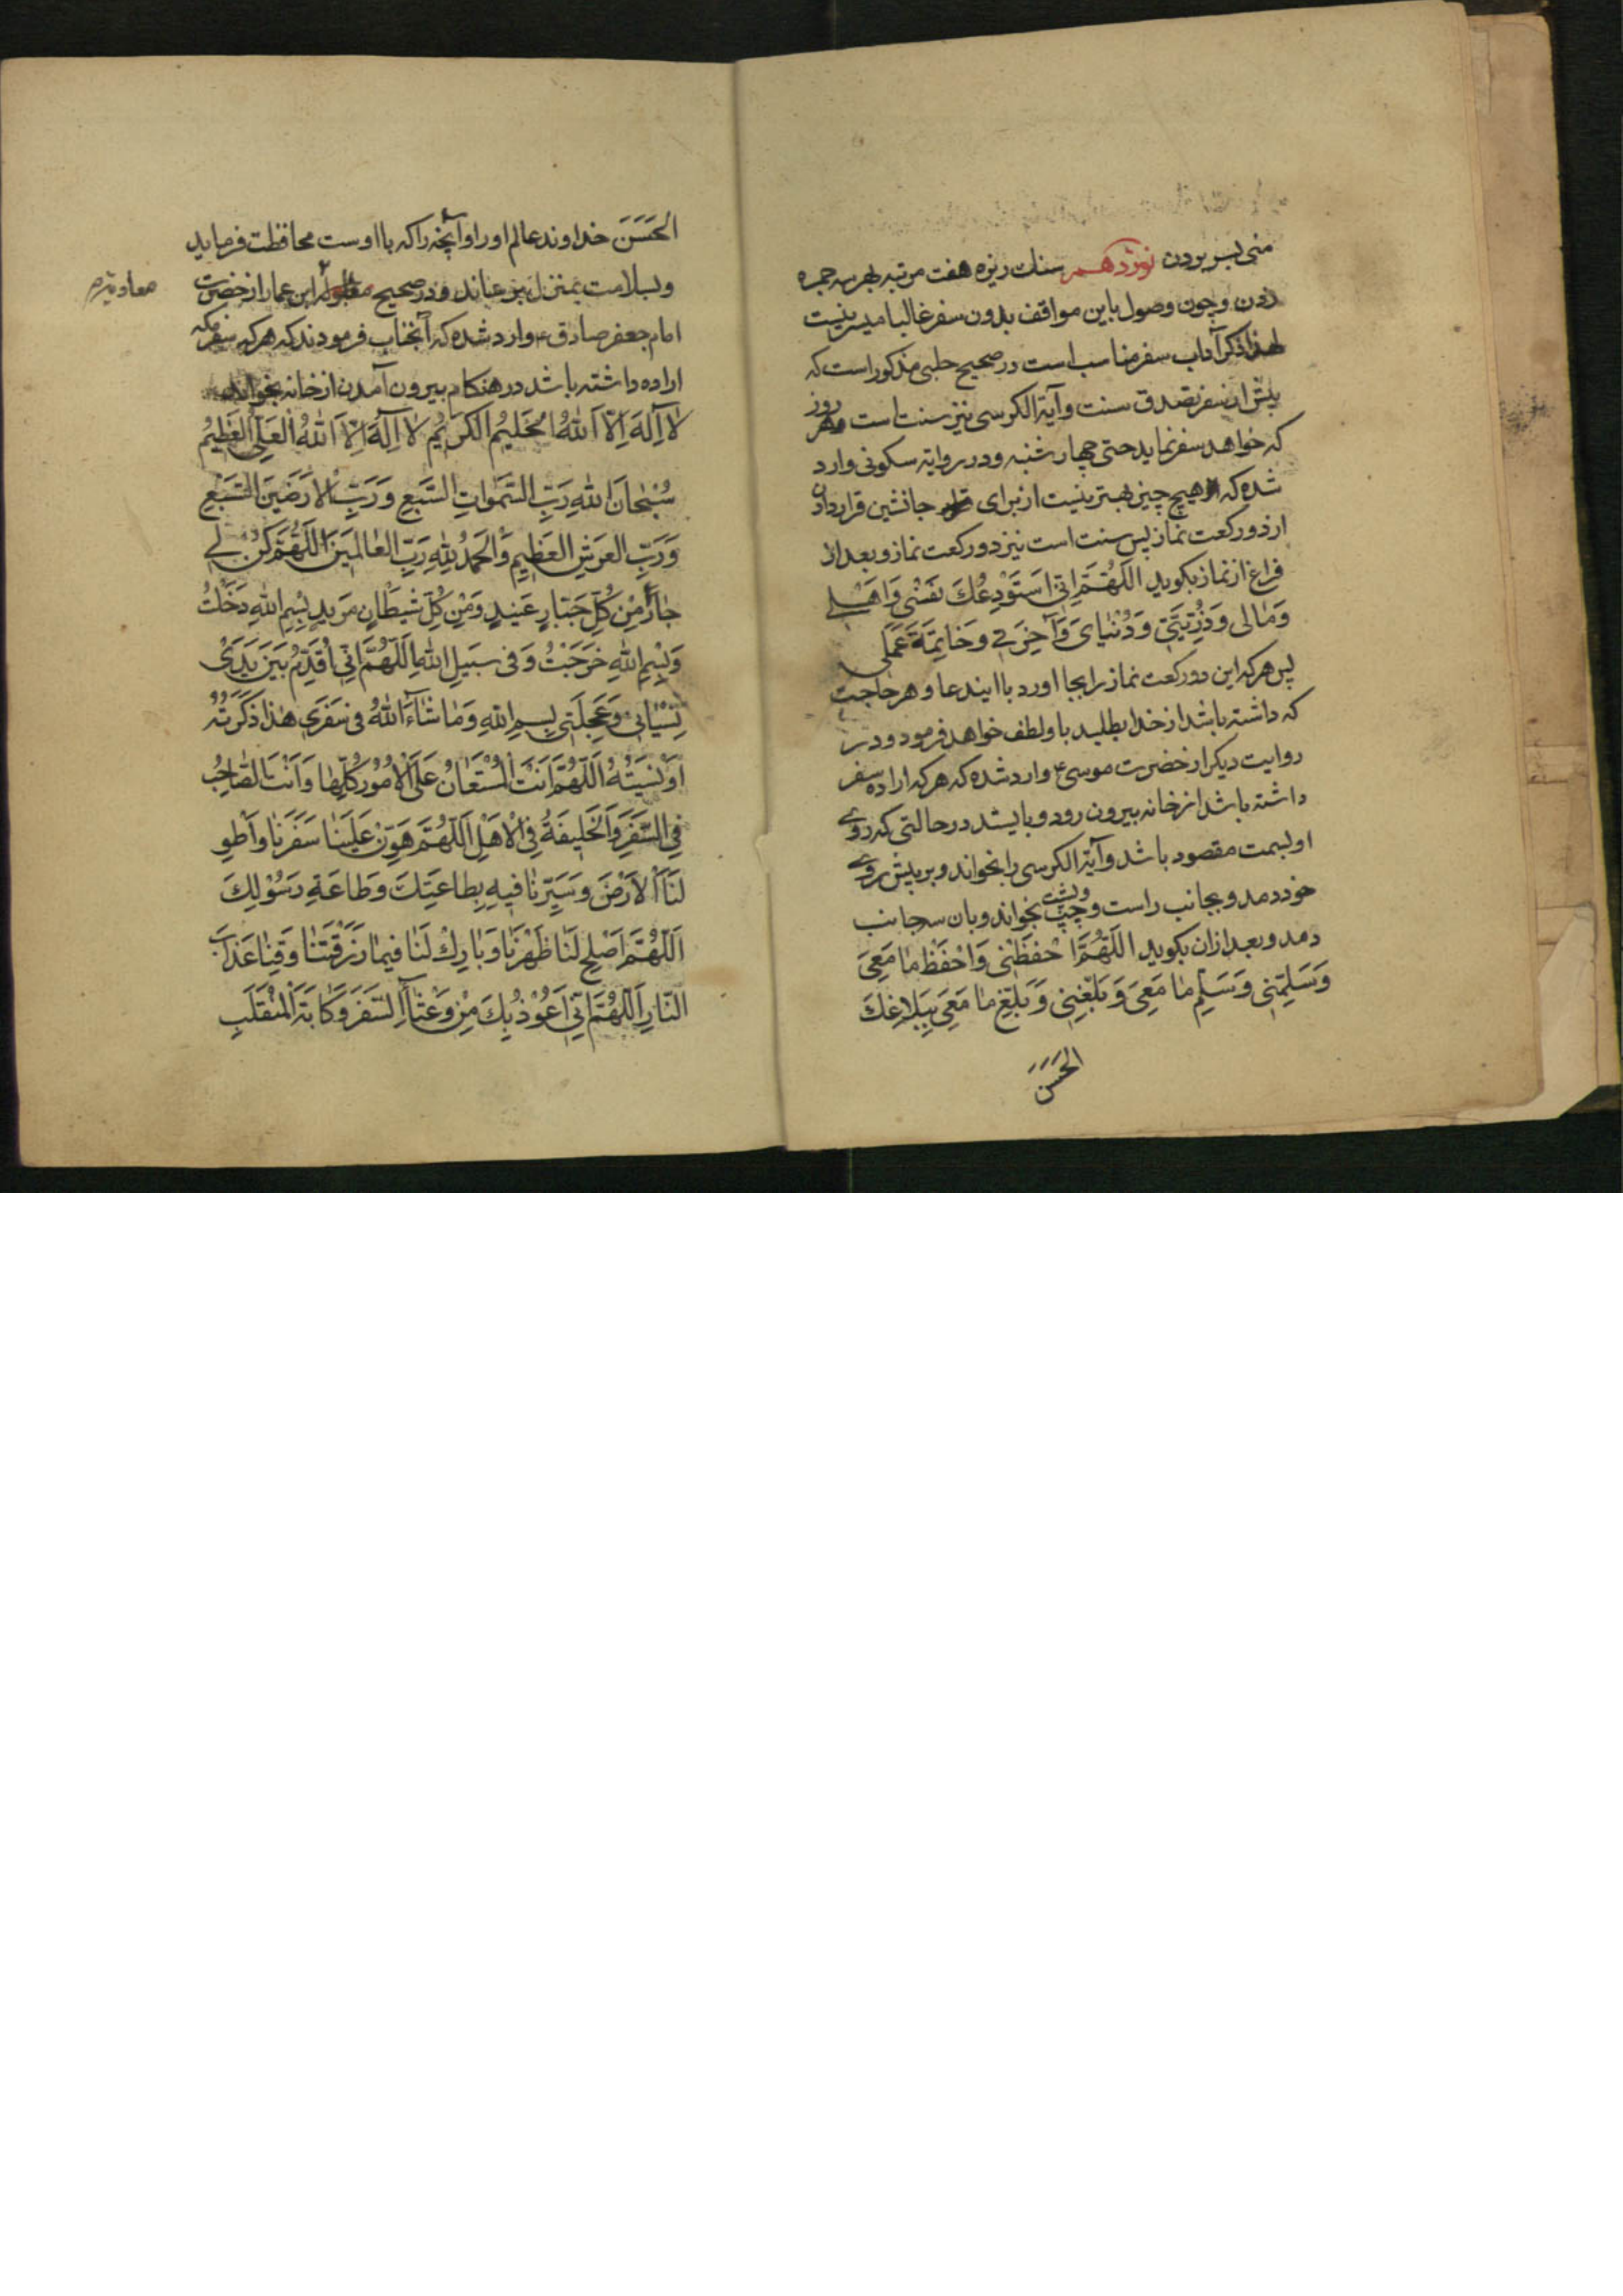 منی بسر بردن نوزدهم سنك ریزه هفت مرتبه بهر سه جمره
زدن و چون وصول باین مواقف بدون سفر غالبا میسر نیست
لهذا ذکر آداب سفر مناسب است در صحیح حلبی مذکور است که
پیش از سفر تصدق سنت و آیة الکرسی نیز سنت است هر روز
که خواهد سفر نماید حتی چهار شنبه و در روایة سکونی وارد
شده که هیچ چیز بهتر نیست از برای جانشین قرار دادن
از دو رکعت نماز پس سنت است نیز دو رکعت نماز و بعد از
فراغ از نماز بکوید اَللّٰهُمَّ اِنّی اَسْتَوْدِعُكَ نَفْسْی وَاَهْلی
وَمٰالی وَذُرِّیَّتی وَدُنْیٰایَ وَآخِرَتی وَخٰاتِمَةَ عَمَلی
پس هر که این دو رکعت نماز را بجا اورد با ایندعا و هر حاجت
که داشته باشد از خدا بطلبد باو لطف خواهد فرمود و در
روایت دیکر از حضرت موسی ع وارد شده که هر که اراده سفر
داشته باشد از خانه بیرون رود و بایستد در حالتی که روی
او بسمت مقصود باشد و آیة الکرسی را بخواند و بر پیش روی
خود دمد و بجانب راست و چپ و پشت بخواند و بان سه جانب
دمد و بعد از ان بکوید اَللّٰهُمَّ احْفَظْنی وَاحْفَظْ مٰا مَعِیَ
وَسَلِّمْنی وَسَلِّمْ مٰا مَعِیَ وَبَلِّغْنِی وَبَلِّغْ مٰا مَعِیَ بِبَلٰاغِكَ
الحَسَنَ
الحَسَنَ خداوند عالم او را و آنچه را که با اوست محافظت فرماید
و بسلامت بمنزل میرساند و در صحیح ابن عمار از حضرت
معاویة
امام جعفر صادق ع وارد شده که آنجناب فرمودند که هر که سفر مکه
اراده داشته باشد در هنکام بیرون آمدن از خانه بخواند
لٰا اِلٰهَ اِلَّا اللّٰهُ الْحَلیُم الکَریُم لٰا اِلٰهَ اِلَّا اللّٰهُ العَلِیُّ العَظِیمُ
سُبْحٰانَ اللّٰهِ رَبِّ السَّمٰوٰاتِ السَّبْعِ وَرَبِّ الْاَرَضینَ السَّبْعِ
وَرَبِّ العَرْشِ العَظیمِ وَالحَمْدُ لِلّٰهِ رَبِّ العٰالَمینَ اَللّٰهُمَّ کُنْ لی
جٰارًا مِنْ کُلِّ جَبّٰارٍ عَنیدٍ وَمِنْ کُلِّ شَیطٰانٍ مَریدٍ بِسْمِ اللّٰهِ دَخَلْتُ
وَبِسْمِ اللّٰهِ خَرَجْتُ وَفی سَبیلِ اللّٰهِ اَللّٰهُمَّ اِنّی اُقَدِّمُ بَیْنَ یَدَیْ
نِسْیٰانی وَعَجِلَتی بِسْمِ اللّٰهِ وَمٰا شٰآءَ اللّٰهُ فی سَفَری هٰذٰا ذَکَرْتُهُ
اَوْ نَسیتُهُ اَللّٰهُمَّ اَنْتَ الْمُسْتَعٰانُ عَلَی الْاُمُورِ کُلِّهٰا وَاَنْتَ الصّٰاحِبُ
فِی السَّفَرِ وَالْخَلیفَةُ فِی الْاَهْلِ اَللّٰهُمَّ هَوِّنْ عَلَیْنٰا سَفَرَنٰا وَاَطْوِ
لَنَا الْاَرْضَ وَسَیِّرْنٰا فیهٖ بِطٰاعَتِكَ وَطٰاعَةِ رَسُوْلِكَ
اَللّٰهُمَّ اَصْلِحْ لَنٰا ظَهْرَنٰا وَبٰارِكْ لَنٰا فیمٰا رَزَقْتَنٰا وَقِنٰا عَذٰابَ
النّٰارِ اَللّٰهُمَّ اِنّی اَعُوْذُ بِكَ مِنْ وَعْثٰآءِ السَّفَرِ وَکٰابَةِ الْمُنْقَلَبِ